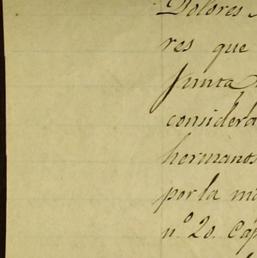 Dolores
res que
Junta
considera
hermanos
por la ma
n.º 20. Cap